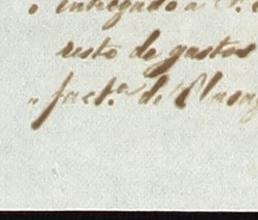 " entregado a
resto de gastos
" fact.ª de